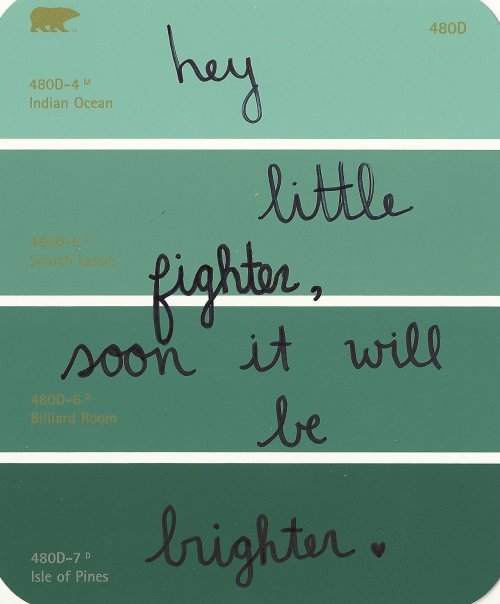 480D
480D-4 M
Indian Ocean
hey
little
480D-5 P
Scotch Lassie
fighter,
soon it will
480D-6 D
Billiard Room
be
480D-7 D
Isle of Pines
brighter.